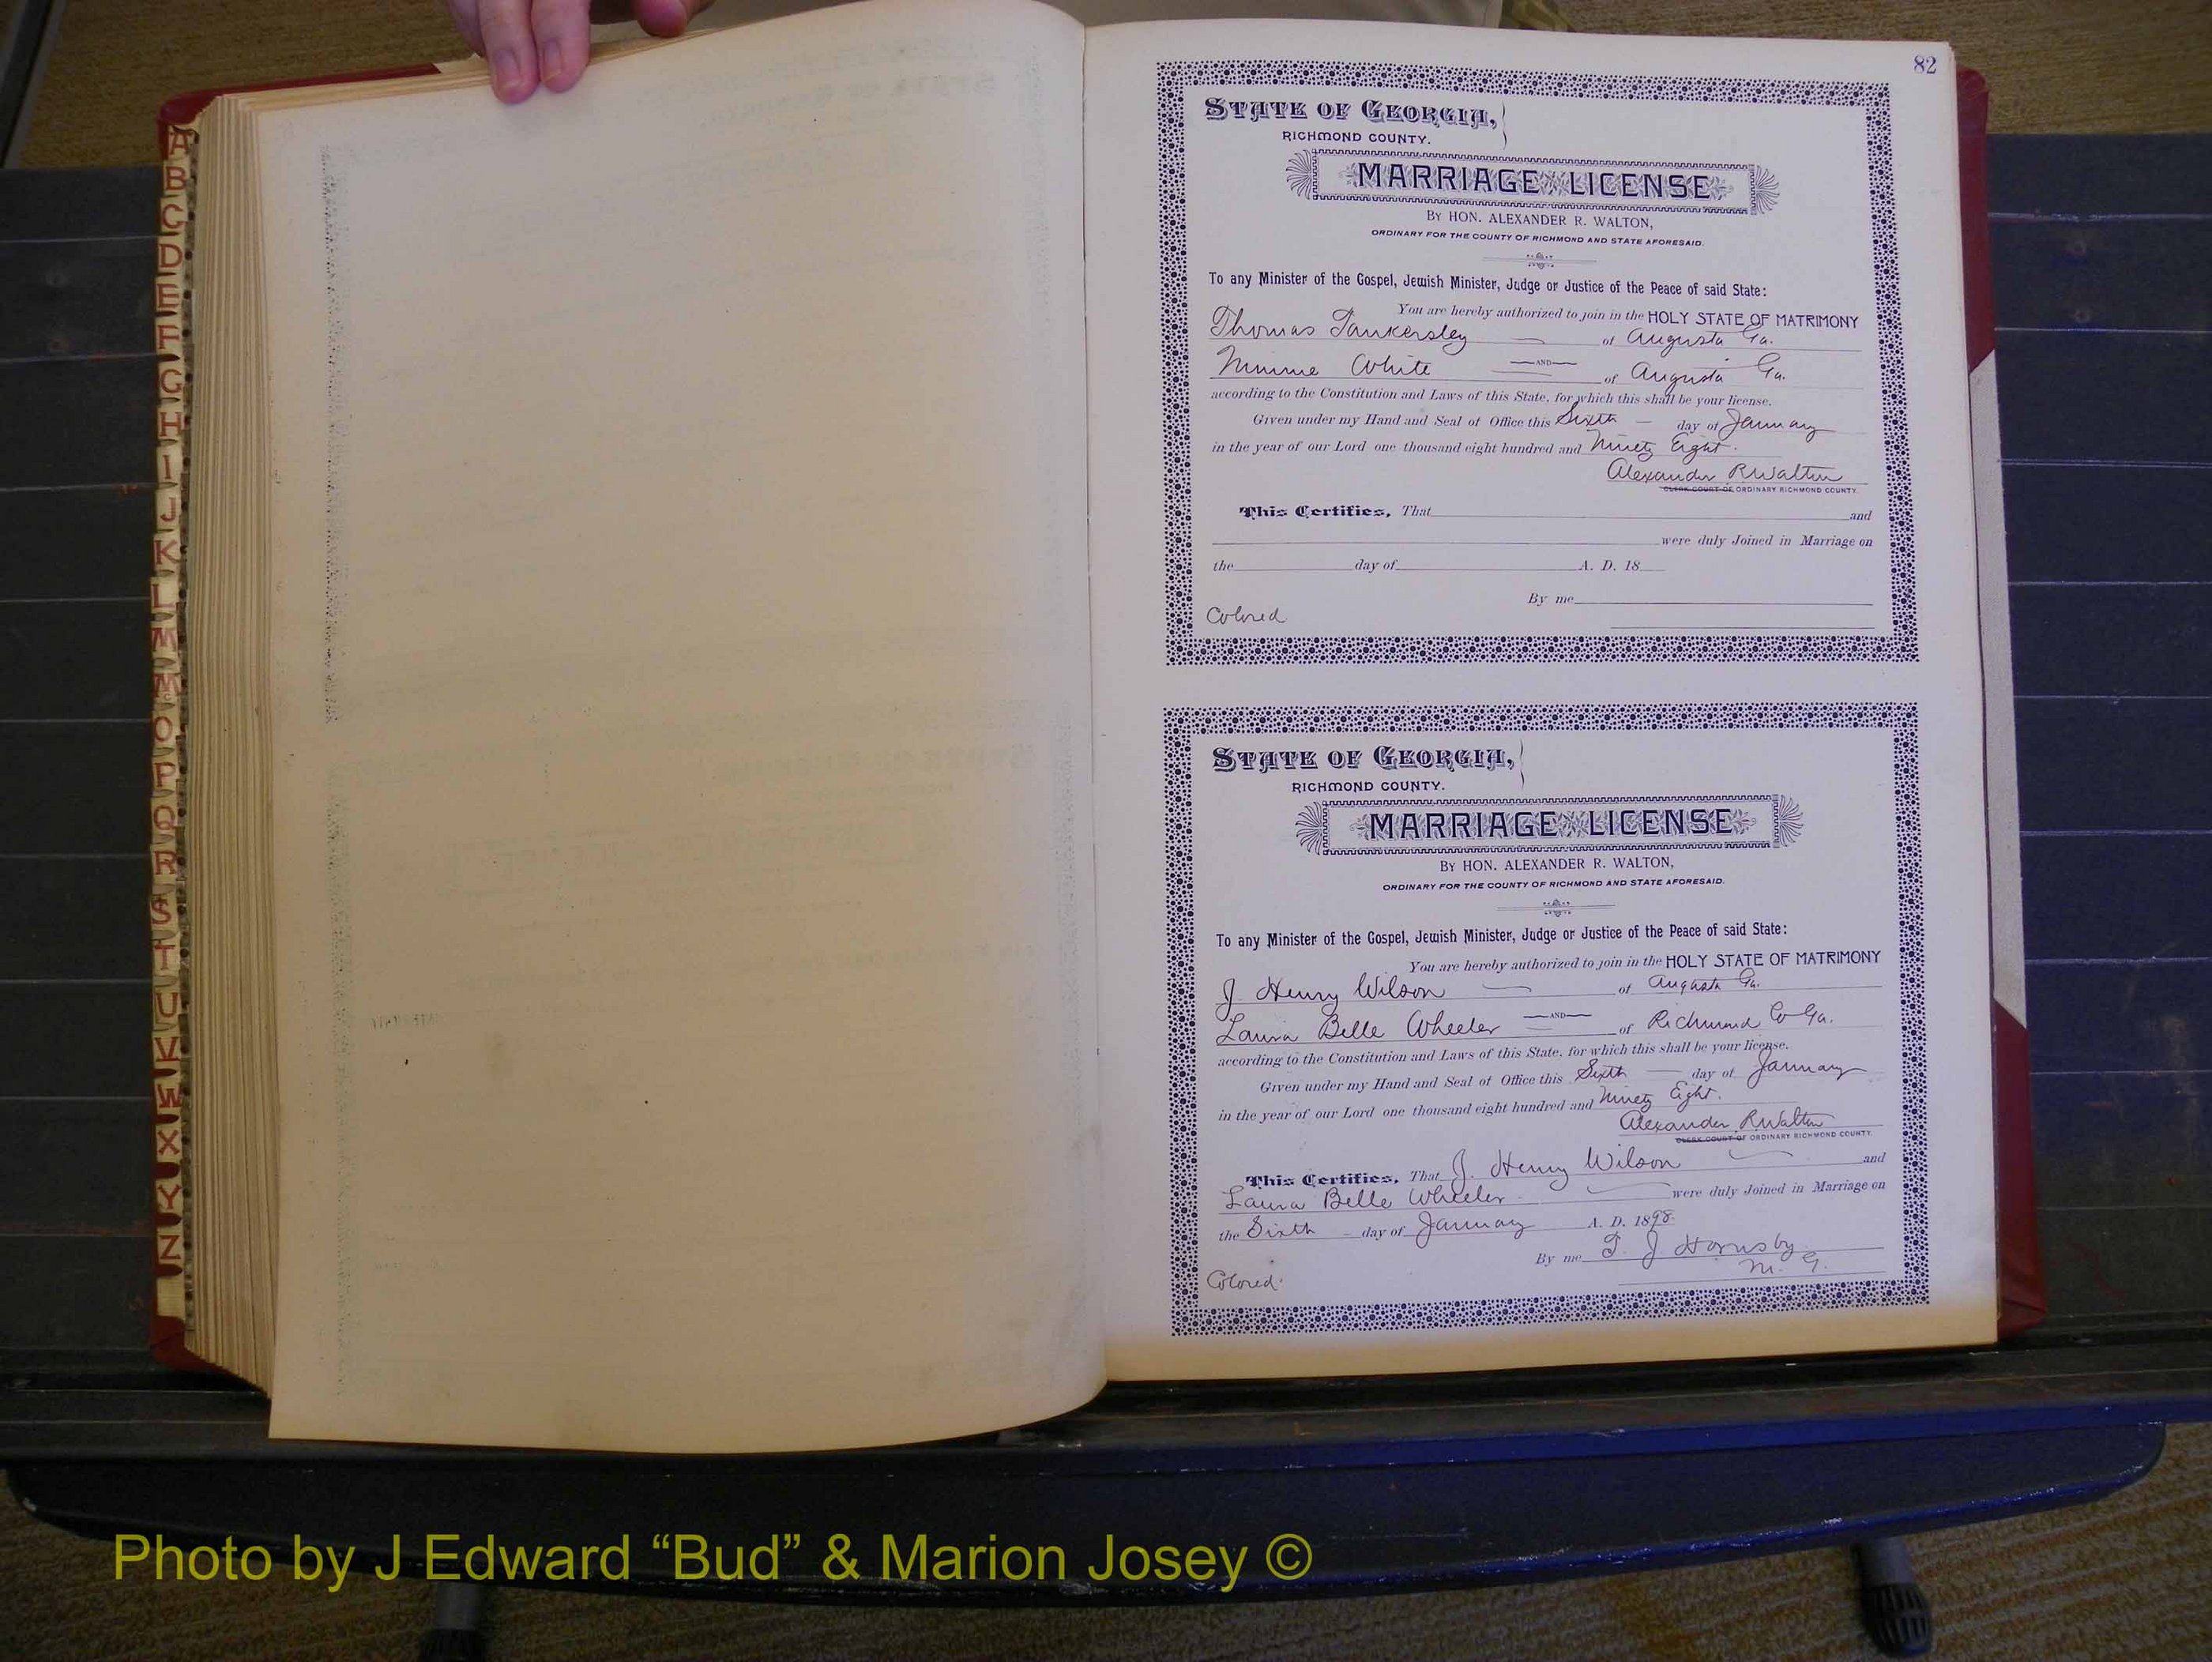 82
A
B
C
D
E
F
G
H
I
J
K
L
M
Mc
O
P
Q
R
S
T
U
V
W
X
Y
Z
STATE OF GEORGIA,
RICHMOND COUNTY.
MARRIAGE LICENSE
BY HON. ALEXANDER R. WALTON,
ORDINARY FOR THE COUNTY OF RICHMOND AND STATE AFORESAID.
To any Minister of the Gospel, Jewish Minister, Judge or Justice of the Peace of said State:
You are hereby authorized to join in the HOLY STATE OF MATRIMONY
Thomas Tankersley of Augusta Ga.
AND
Minnie White of Augusta Ga.
according to the Constitution and Laws of this State, for which this shall be your license.
Given under my Hand and Seal of Office this Sixth day of January
in the year of our Lord one thousand eight hundred and Ninety Eight.
Alexander R Walton
CLERK COURT OF ORDINARY RICHMOND COUNTY.
This Certifies, That and
were duly Joined in Marriage on
the day of A. D. 18
By me
Colored
STATE OF GEORGIA,
RICHMOND COUNTY.
MARRIAGE LICENSE
BY HON. ALEXANDER R. WALTON,
ORDINARY FOR THE COUNTY OF RICHMOND AND STATE AFORESAID.
To any Minister of the Gospel, Jewish Minister, Judge or Justice of the Peace of said State:
You are hereby authorized to join in the HOLY STATE OF MATRIMONY
J. Henry Wilson of Augusta Ga.
AND
Laura Belle Wheeler of Richmond Co Ga.
according to the Constitution and Laws of this State, for which this shall be your license.
Given under my Hand and Seal of Office this Sixth day of January
in the year of our Lord one thousand eight hundred and Ninety Eight.
Alexander R Walton
CLERK COURT OF ORDINARY RICHMOND COUNTY.
This Certifies, That J. Henry Wilson and
Laura Belle Wheeler were duly Joined in Marriage on
the Sixth day of January A. D. 1898.
By me T. J. Hornsby
M. G.
Colored.
Photo by J Edward “Bud” & Marion Josey ©